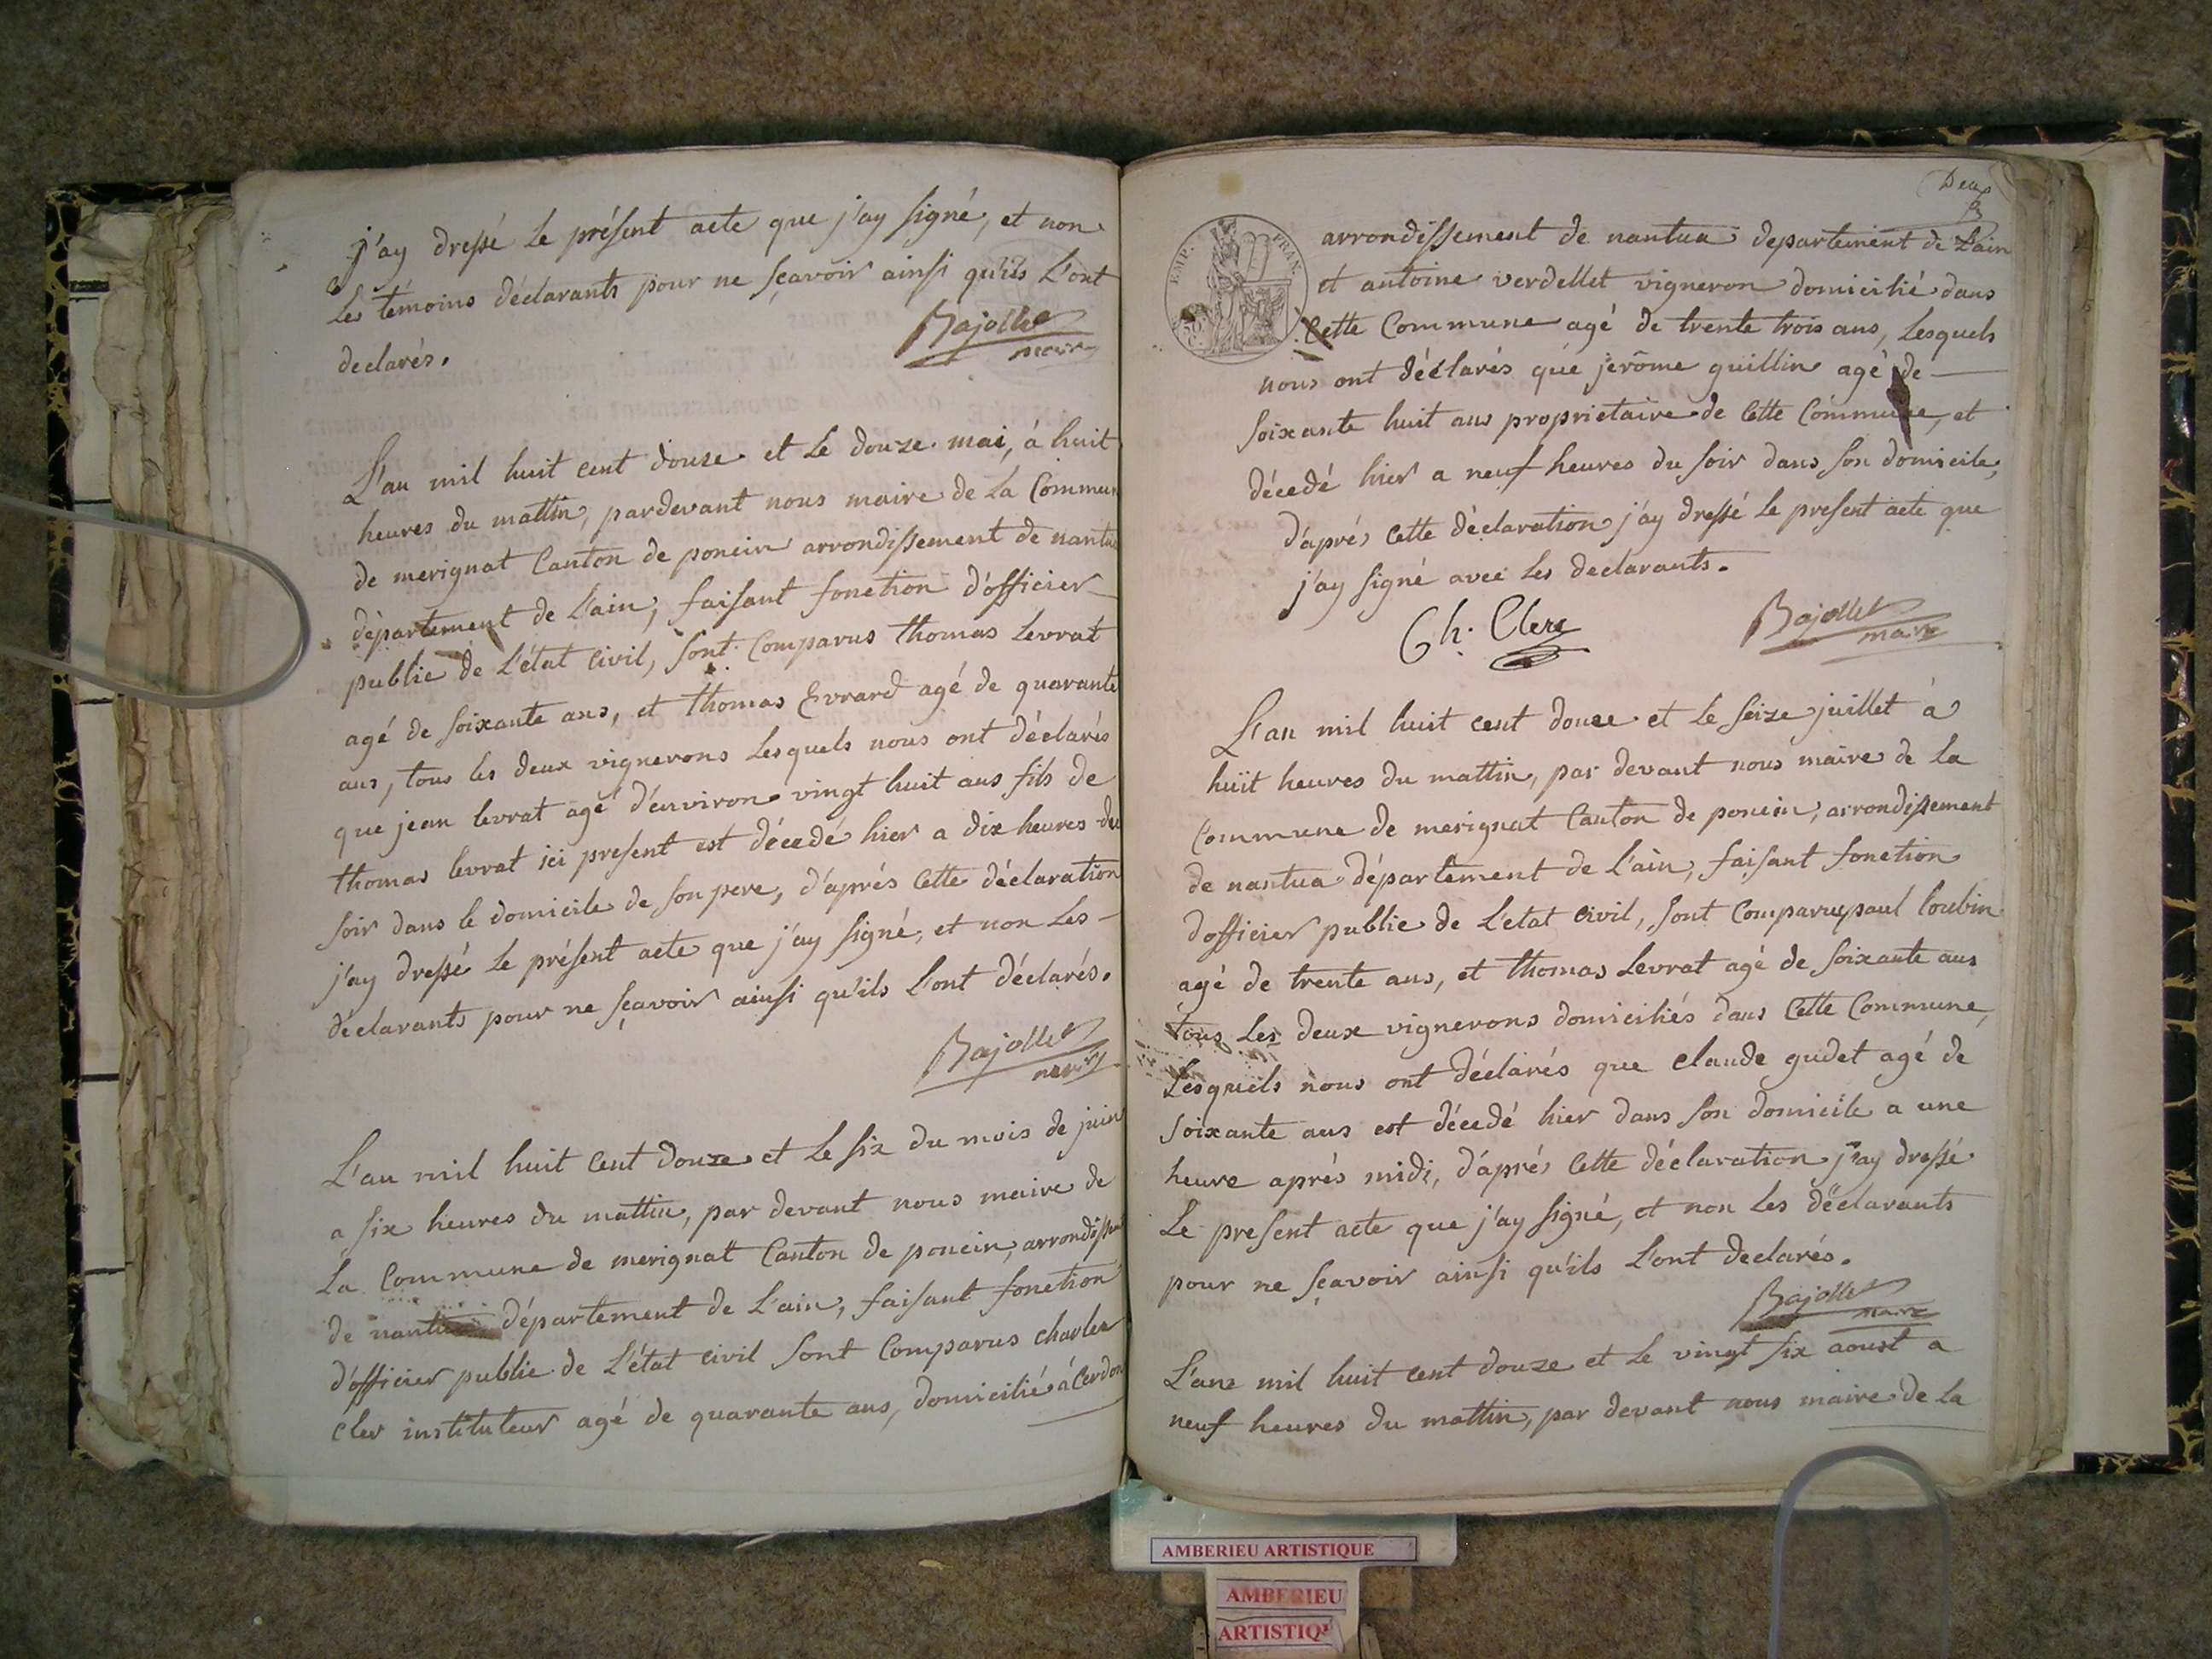 j'ay dressé le présent acte que j'ay signé, et non
les témoins déclarants pour ne sçavoir ainsi qu'ils l'ont
declarés.
Bajollet
maire
L'an mil huit cent douze et le douze mai, à huit
heures du mattin, pardevant nous maire de la Commun
de merignat Canton de poncin arrondissement de nantua
département de l'ain, faisant fonction d'officier
public de l'état civil, sont Comparus thomas Levrat
agé de soixante ans, et thomas Evrard agé de quarante
ans, tous les deux vignerons Lesquels nous ont déclarés
que jean levrat agé d'environ vingt huit ans fils de
thomas levrat ici present est décedé hier a dix heures du
soir dans le domicile de son pere, d'aprés cette déclaration
j'ay dressé le présent acte que j'ay signé, et non les
declarants pour ne sçavoir ainsi qu'ils l'ont déclarés.
Bajollet
maire
L'an mil huit cent douze et le six du mois de juin
a six heures du mattin, par devant nous maire de
la Commune de merignat Canton de poncin, arrondissem
de nantua département de l'ain, faisant fonction
d'officier public de l'état civil sont Comparus charles
cler instituteur agé de quarante ans, domicilié à Cerdon
Deux
arrondissement de nantua departement de l'ain
et antoine verdellet vigneron domicilié dans
Cette Commune agé de trente trois ans, Lesquels
nous ont déclarés que jerôme guillin agé de
soixante huit ans proprietaire de cette Commune, et
décedé hier a neuf heures du soir dans son domicile,
d'aprés cette déclaration j'ay dressé le present acte que
j'ay signé avec les declarants.
EMP. FRAN.
Ch. Clerc
Bajollet
maire
L'an mil huit cent douze et le seize juillet à
huit heures du mattin, par devant nous maire de la
Commune de merignat Canton de poncin, arrondissement
de nantua département de l'ain, faisant fonction
d'officier public de l'etat civil, sont Comparus paul loubin
agé de trente ans, et thomas Levrat agé de soixante ans
tous les deux vignerons domiciliés dans Cette Commune,
Lesquels nous ont déclarés que claude gudet agé de
soixante ans est décedé hier dans son domicile a une
heure aprés midi, d'aprés Cette déclaration j'ay dressé
Le present acte que j'ay signé, et non les déclarants
pour ne sçavoir ainsi qu'ils l'ont declarés.
Bajollet
maire
L'an mil huit cent douze et le vingt six aoust a
neuf heures du mattin, par devant nous maire de la
AMBERIEU ARTISTIQUE
AMBERIEU
ARTISTIQU